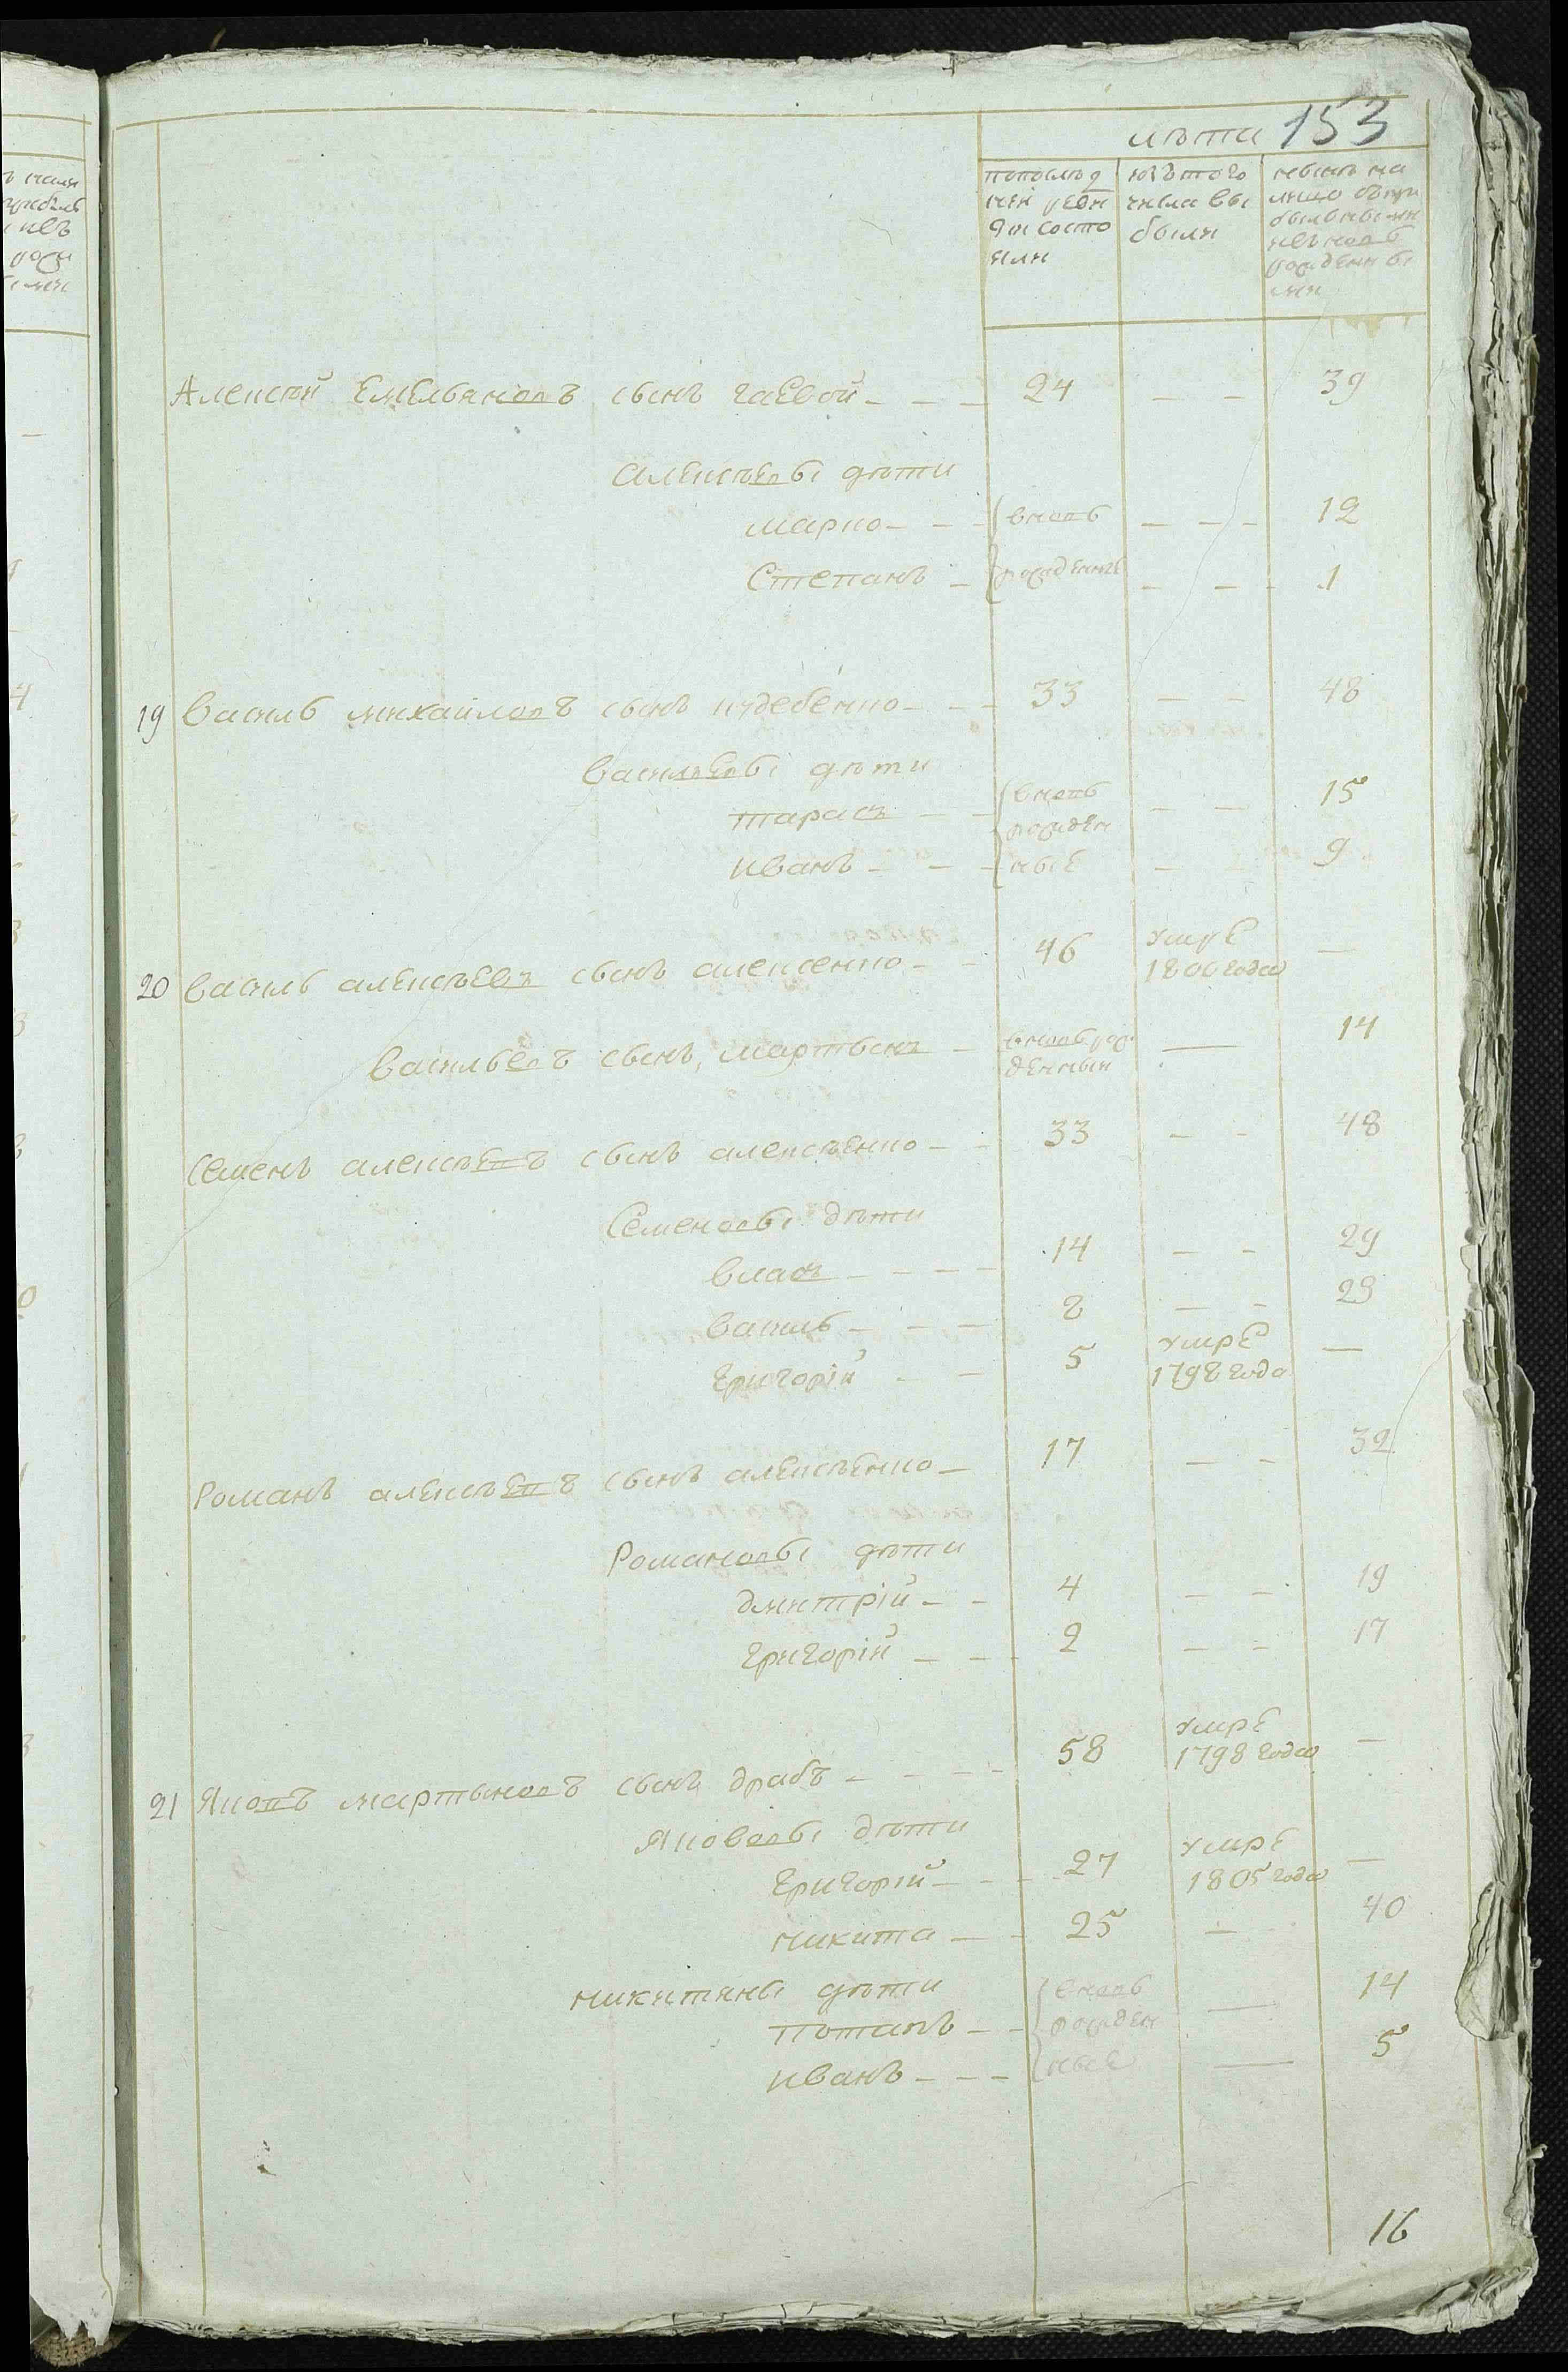 лѣта 153
попослѣд
ней реви
зіи состо
яли
изътого
числа вы
были
нынѣ на
лицо съпри
былыми и
новь
рожденны
ми
Алексѣй Емельяновъ сынъ гаевой — — — 24 — — 39
Алексѣевы дѣти
марко — — — вновь — — — 12
Степанъ — рожденные — — — 1
19 Василь михайловъ сынъ кудебенко — — — 33 — — 48
васильевы дѣти
тарасъ — — вновь — — 15
рожден
иванъ — — — ные — — 9
20 василь алексѣевъ сынъ алексенко — — 46 умре 1800 года —
васильевъ сынъ мартынъ — вновь рож
денный — 14
Семенъ алексѣевъ сынъ алексѣенко — — 33 — — 48
Семеновы дѣти
власъ — — — — 14 — — 29
василь — — — 8 — — 23
григорій — — 5 умре 1798 года —
Романъ алексѣевъ сынъ алексѣенко — 17 — — 32
Романовы дѣти
дмитрій — — 4 — — 19
григорій — — — 2 — — 17
21 Яковъ мартыновъ сынъ драбъ — — — — 58 умре 1798 года —
Яковвовы дѣти
григорій — — — 27 умре 1805 года —
никита — — 25 — 40
никитины дѣти
потапъ — — вновь
рожден — 14
иванъ — — — ные — 5
16